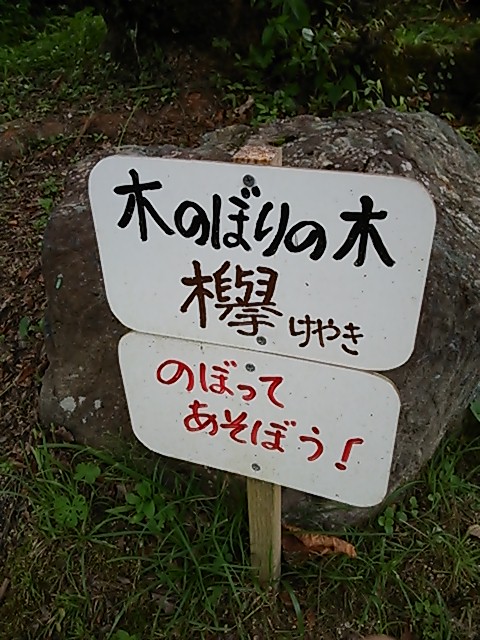 木のぼりの木
欅 けやき
のぼって
あそぼう!